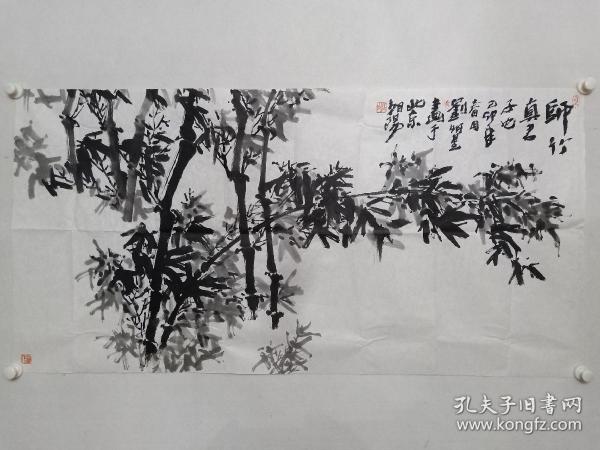 師竹
真君
子也
己卯年
春月
劉
畫于
北京
朝陽
孔夫子旧书网
www.kongfz.com